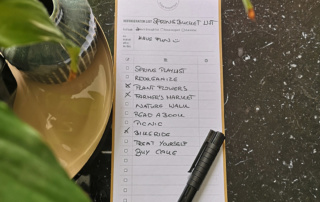 SPRING BUCKET LIST
HAVE FUN
SPRING PLAYLIST
REORGANIZE
PLANT FLOWERS
FARMER'S MARKET
NATURE WALK
READ A BOOK
PICNIC
BIKE RIDE
TREAT YOURSELF
BUY CAKE